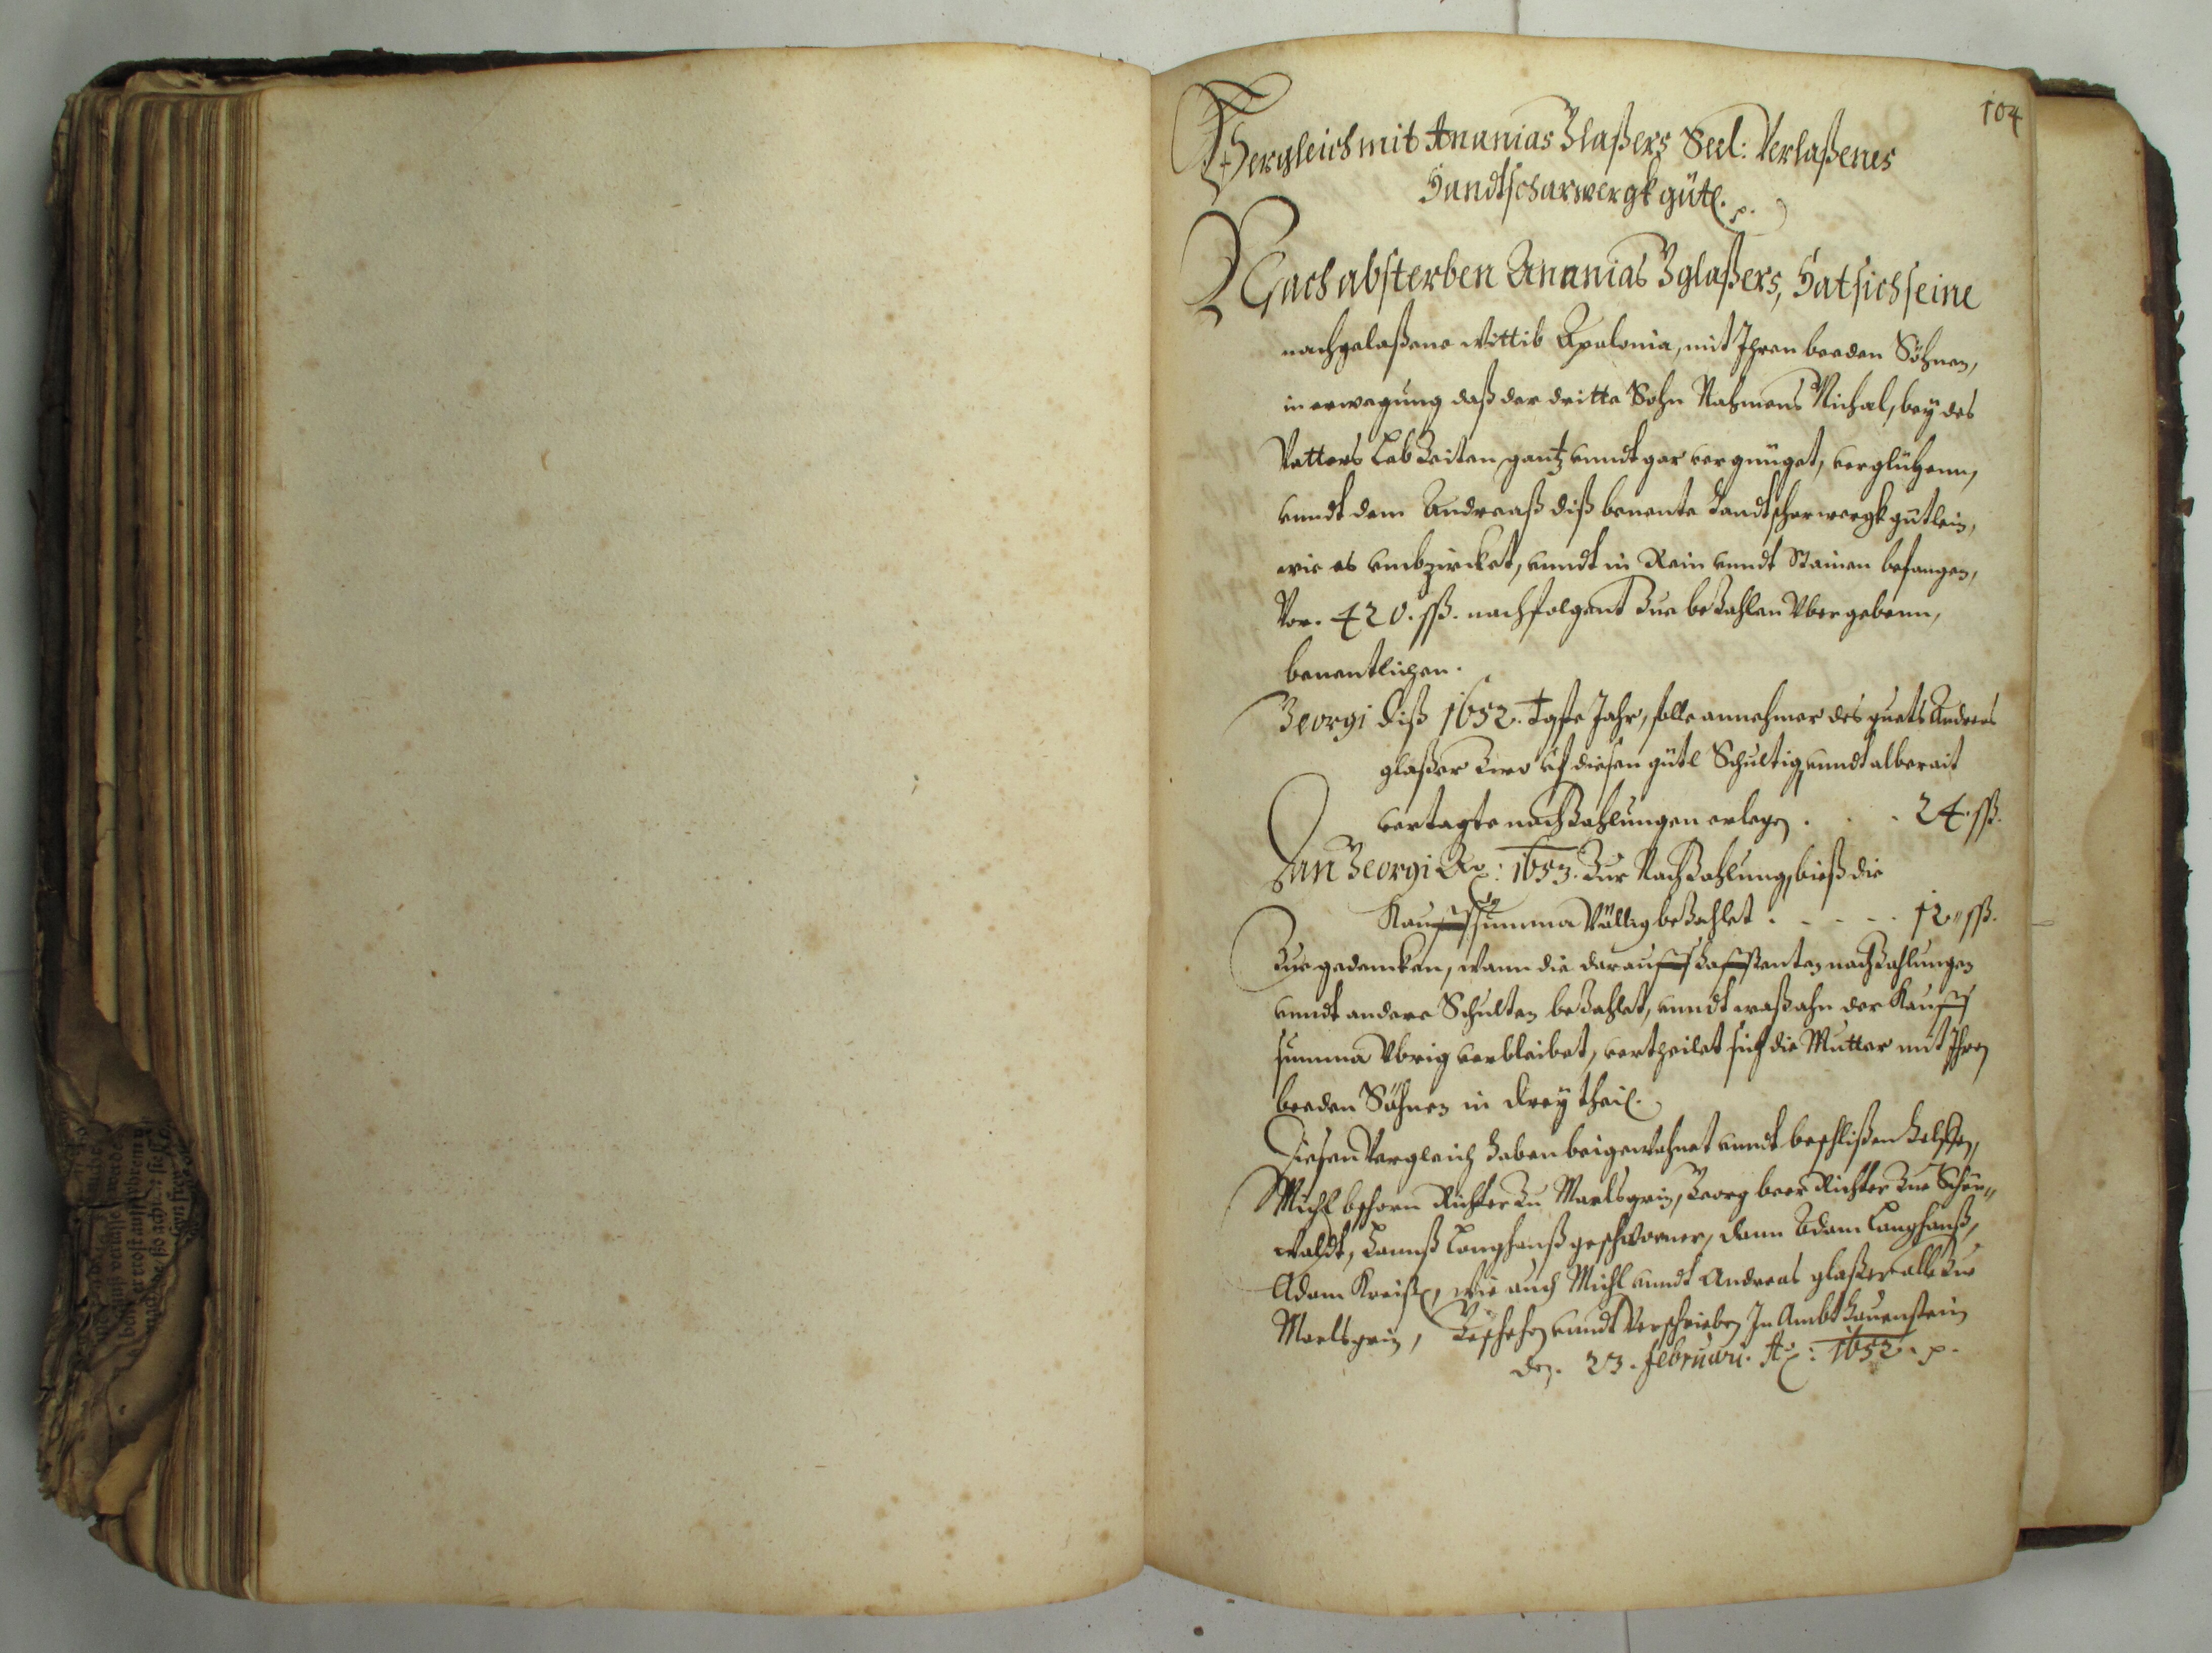 104
Vergleich mit Ananias Glaßers Seel: Verlaßenes
Handtscharwergk gütl. p.
Nach absterben Ananias Glaßers, Hat sich seine
nachgelaßene Wittib Apolonia, mit Ihren beeden Söhnen,
in erwegung daß der dritte Sohn Nahmens Michal, bey des
Vatters LebZeiten gantz vnndt gar vergnüget, verglichenn,
vnndt dem Andreaß diß benente Handtscharwergk gütlein,
wie es vmbzircket, vnndt in Rein vnndt Stainen befangen,
Vor. 420. ßß. nachfolgent Zue beZahlen Vbergebenn,
benentlichen.
Georgi diß 1652. Igste Jahr, solle annehmer des guets Andreas
glaßer Zwo vf diesen gütl Schultig vnndt alberait
vertagte nachZahlungen erlegen . . . 24. ßß.
An Georgi Ao: 1653. Zur NachZahlung, bieß die
Kauffsumma Völlig beZahlet . . . . . 12 ßß.
Zue gedencken, wann die darauff hafftenten nachZahlungen
vnndt andere Schulten beZahlet, vnndt waß ahn der Kauff
summa Vbrig verbleibet, vertheilet sich die Mutter mit Ihren
beeden Söhnen in drey theil.
Diesen Vergleich haben beigewohnet vnndt beschlißen helffen,
Michl Richter Zu Marlsgrin, Georg beer Richter Zue Schön"
waldt, Hannß Langhanß geschworner, dann Adam Langhanß,
Adam Kreiß, wie auch Michl vnndt Andreas glaßer alle Zue
Marlsgrin, Geschehen vnndt Verschrieben Im Ambt Hauenstein
den. 23. februari. Ao: 1652. p.